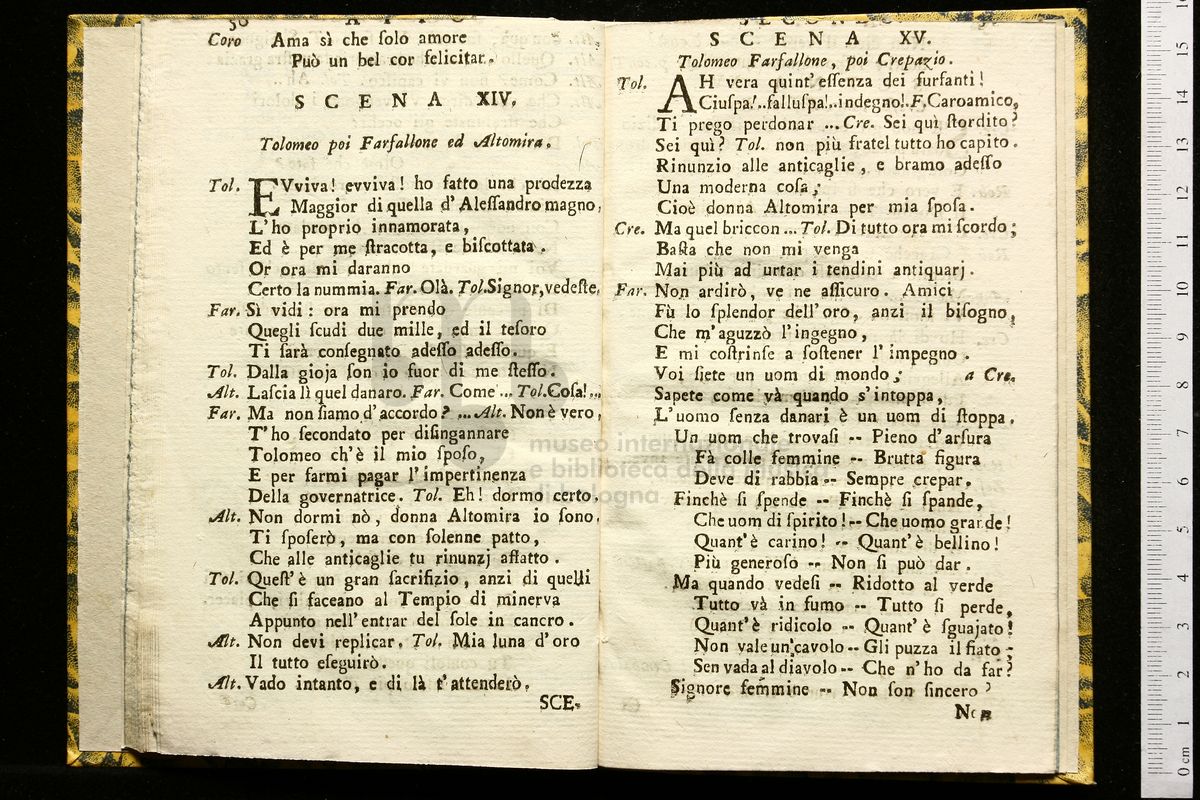 50 ATTO
Coro Ama sì che ſolo amore
Può un bel cor felicitar.
SCENA XIV.
Tolomeo poi Farfallone ed Altomira.
Tol. EVviva! evviva! ho fatto una prodezza
Maggior di quella d'Aleſſandro magno,
L'ho proprio innamorata,
Ed è per me ſtracotta, e biſcottata.
Or ora mi daranno
Certo la nummia. Far. Olà. Tol. Signor, vedeſte,
Far. Sì vidi: ora mi prendo
Quegli ſcudi due mille, ed il teſoro
Ti ſarà conſegnato adeſſo adeſſo.
Tol. Dalla gioja ſon io fuor di me ſteſſo.
Alt. Laſcia lì quel danaro. Far. Come ... Tol. Coſa!...
Far. Ma non ſiamo d'accordo? ... Alt. Non è vero,
T'ho ſecondato per diſingannare
Tolomeo ch'è il mio ſpoſo,
E per farmi pagar l'impertinenza
Della governatrice. Tol. Eh! dormo certo.
Alt. Non dormi nò, donna Altomira io ſono.
Ti ſpoſerò, ma con ſolenne patto,
Che alle anticaglie tu rinunzj affatto.
Tol. Queſt'è un gran ſacrifizio, anzi di quelli
Che ſi faceano al Tempio di minerva
Appunto nell'entrar del ſole in cancro.
Alt. Non devi replicar. Tol. Mia luna d'oro
Il tutto eſeguirò.
Alt. Vado intanto, e di là t'attenderò.
SCE-
SECONDO
SCENA XV.
Tolomeo Farfallone, poi Crepazio.
Tol. AH vera quint'eſſenza dei furfanti!
Ciuſpa!..falluſpa!..indegno!. F, Caro amico,
Ti prego perdonar ... Cre. Sei quì ſtordito?
Sei quì? Tol. non più fratel tutto ho capito.
Rinunzio alle anticaglie, e bramo adeſſo
Una moderna coſa;
Cioè donna Altomira per mia ſpoſa.
Cre. Ma quel briccon ... Tol. Di tutto ora mi ſcordo;
Baſta che non mi venga
Mai più ad urtar i tendini antiquarj.
Far. Non ardirò, ve ne aſſicuro. Amici
Fù lo ſplendor dell'oro, anzi il biſogno,
Che m'aguzzò l'ingegno,
E mi coſtrinſe a ſoſtener l'impegno.
Voi ſiete un uom di mondo; a Cre.
Sapete come và quando s'intoppa,
L'uomo ſenza danari è un uom di ſtoppa.
Un uom che trovaſi -- Pieno d'arſura
Fà colle femmine -- Brutta figura
Deve di rabbia -- Sempre crepar.
Finchè ſi ſpende -- Finchè ſi ſpande,
Che uom di ſpirito! -- Che uomo grande!
Quant'è carino! -- Quant'è bellino!
Più generoſo -- Non ſi può dar.
Ma quando vedeſi -- Ridotto al verde
Tutto và in fumo -- Tutto ſi perde,
Quant'è ridicolo -- Quant'è ſguajato!
Non vale un cavolo -- Gli puzza il fiato -
Sen vada al diavolo -- Che n'ho da far?
Signore femmine -- Non ſon ſincero?
Non
museo internazionale
e biblioteca della musica
di bologna
0 cm 1 2 3 4 5 6 7 8 9 10 11 12 13 14 15 16